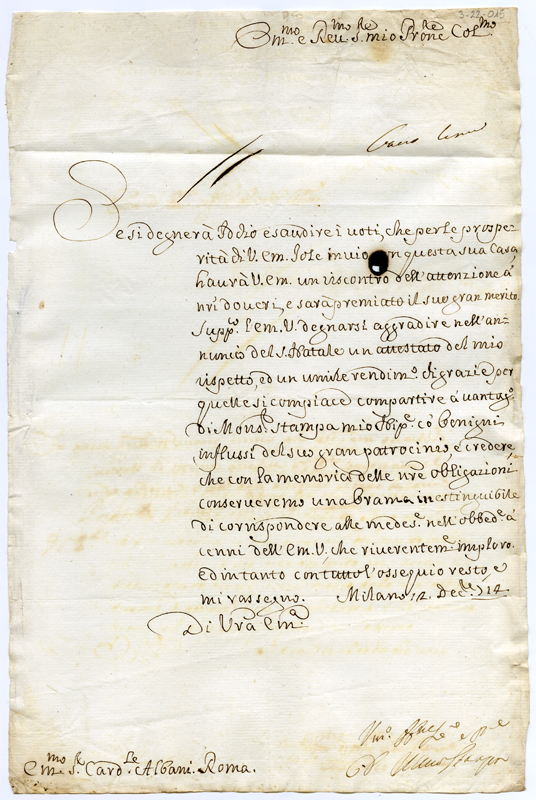 3-22-015
Em.mo e Reu.mo S.re mio Prōne Col.mo
Se si degnerà Iddio esaudire i voti, che per le prospe=
rità di V. Em. Io le inuio in questa sua Casa,
haurà V. Em. un riscontro dell'attenzione à
nr̄i doueri, e sarà premiato il suo gran merito.
Supp.co l'Em. V. degnarsi aggradire nell'an=
nuncio del S. Natale un attestato del mio
rispetto, ed un umile rendim.o di grazie per
quelle si compiace compartire à uantag.o
di Mons.r Stampa mio Nip.e co' benigni
influssi del suo gran patrocinio, e credere,
che con la memoria delle nr̄e obligazioni
conserueremo una brama inestinguibile
di corrispondere alle medes.e nell'obbed.a à
cenni dell'Em. V., che riuerentem.e imploro.
Ed intanto con tutto l'ossequio resto, e
mi rassegno. Milano 12. Dec.e 714
Di Vr̄a Em.a
Em.mo S.r Card.le Albani. Roma.